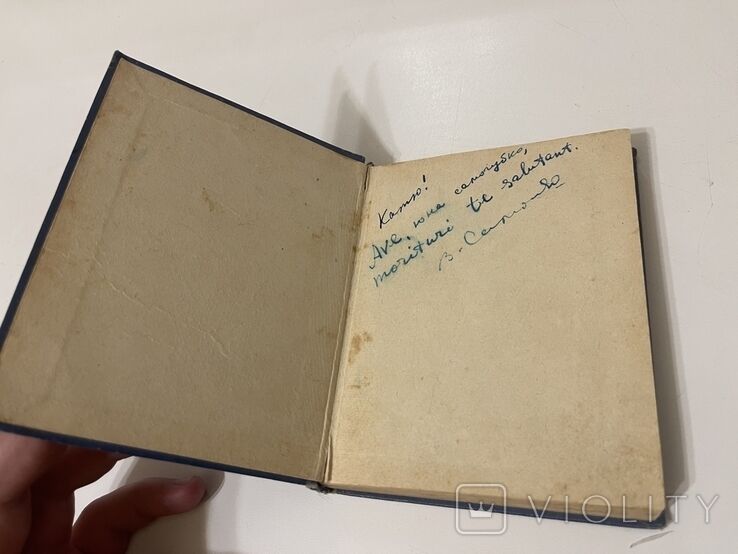 Катю!
Ave, юна самогубко,
morituri te salutant.
В. Самойл
VIOLITY